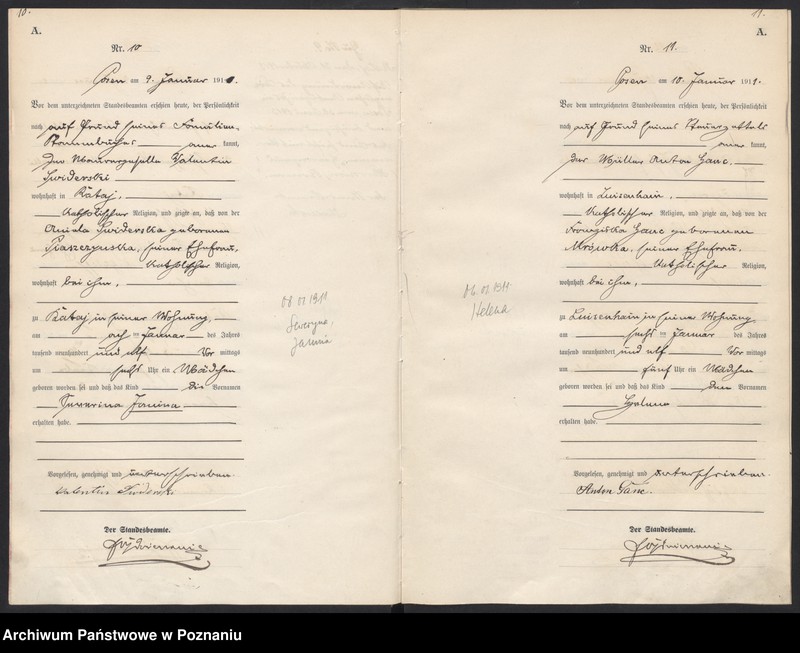 10.
A.
Nr. 10
Posen am 9. Januar 1911.
Vor dem unterzeichneten Standesbeamten erschien heute, der Persönlichkeit
nach auf Grund seines Familien-
Stammbuches aner kannt,
der Maurergeselle Valentin
Swiderski
wohnhaft in Rataj,
katholischer Religion, und zeigte an, daß von der
Aniela Swiderska geborenen
seiner Ehefrau,
katholischer Religion,
wohnhaft bei ihm,
zu Rataj in seiner Wohnung,
am acht ten Januar des Jahres
tausend neunhundert und elf Vor mittags
um sechs Uhr ein Mädchen
geboren worden sei und daß das Kind die Vornamen
Severina Janina
erhalten habe.
Vorgelesen, genehmigt und unterschrieben.
Valentin Swiderski
Der Standesbeamte.
08 01 1911
Seweryna,
Janina
11.
A.
Nr. 11.
Posen am 10. Januar 1911.
Vor dem unterzeichneten Standesbeamten erschien heute, der Persönlichkeit
nach auf Grund seines Steuerzettels
aner kannt,
der Müller Anton Ganc.
wohnhaft in Luisenhain,
katholischer Religion, und zeigte an, daß von der
Franziska Ganc geborenen
Mrówka, seiner Ehefrau,
katholischer Religion,
wohnhaft bei ihm,
zu Luisenhain in seiner Wohnung
am sechs ten Januar des Jahres
tausend neunhundert und elf Vor mittags
um fünf Uhr ein Mädchen
geboren worden sei und daß das Kind den Vornamen
Helena
erhalten habe.
Vorgelesen, genehmigt und unterschrieben.
Anton Ganc.
Der Standesbeamte.
06 01 1911
Helena
Archiwum Państwowe w Poznaniu